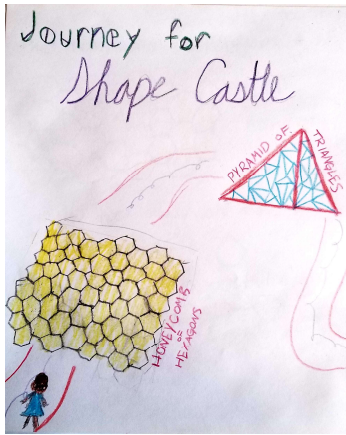 Journey for
Shape Castle
PYRAMID OF
TRIANGLES
HONEYCOMB
OF
HEXAGONS